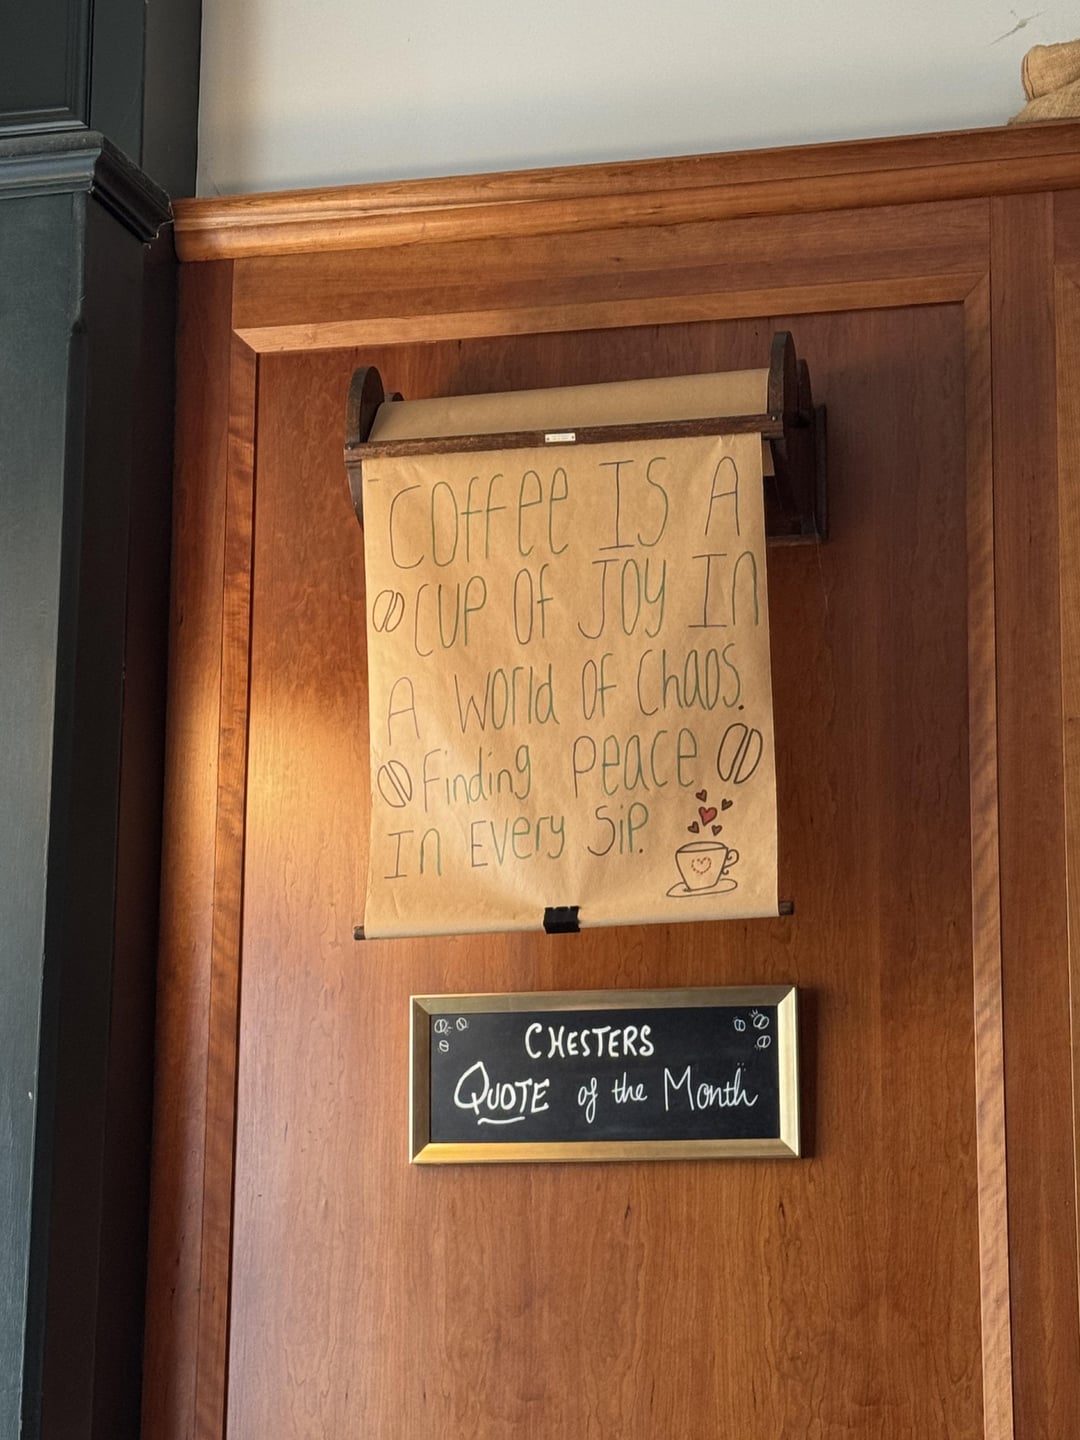 COffee IS A
CUP Of JOY In
A World Of Chaos.
Finding Peace
In Every SiP.
CHESTERS
QUOTE of the Month